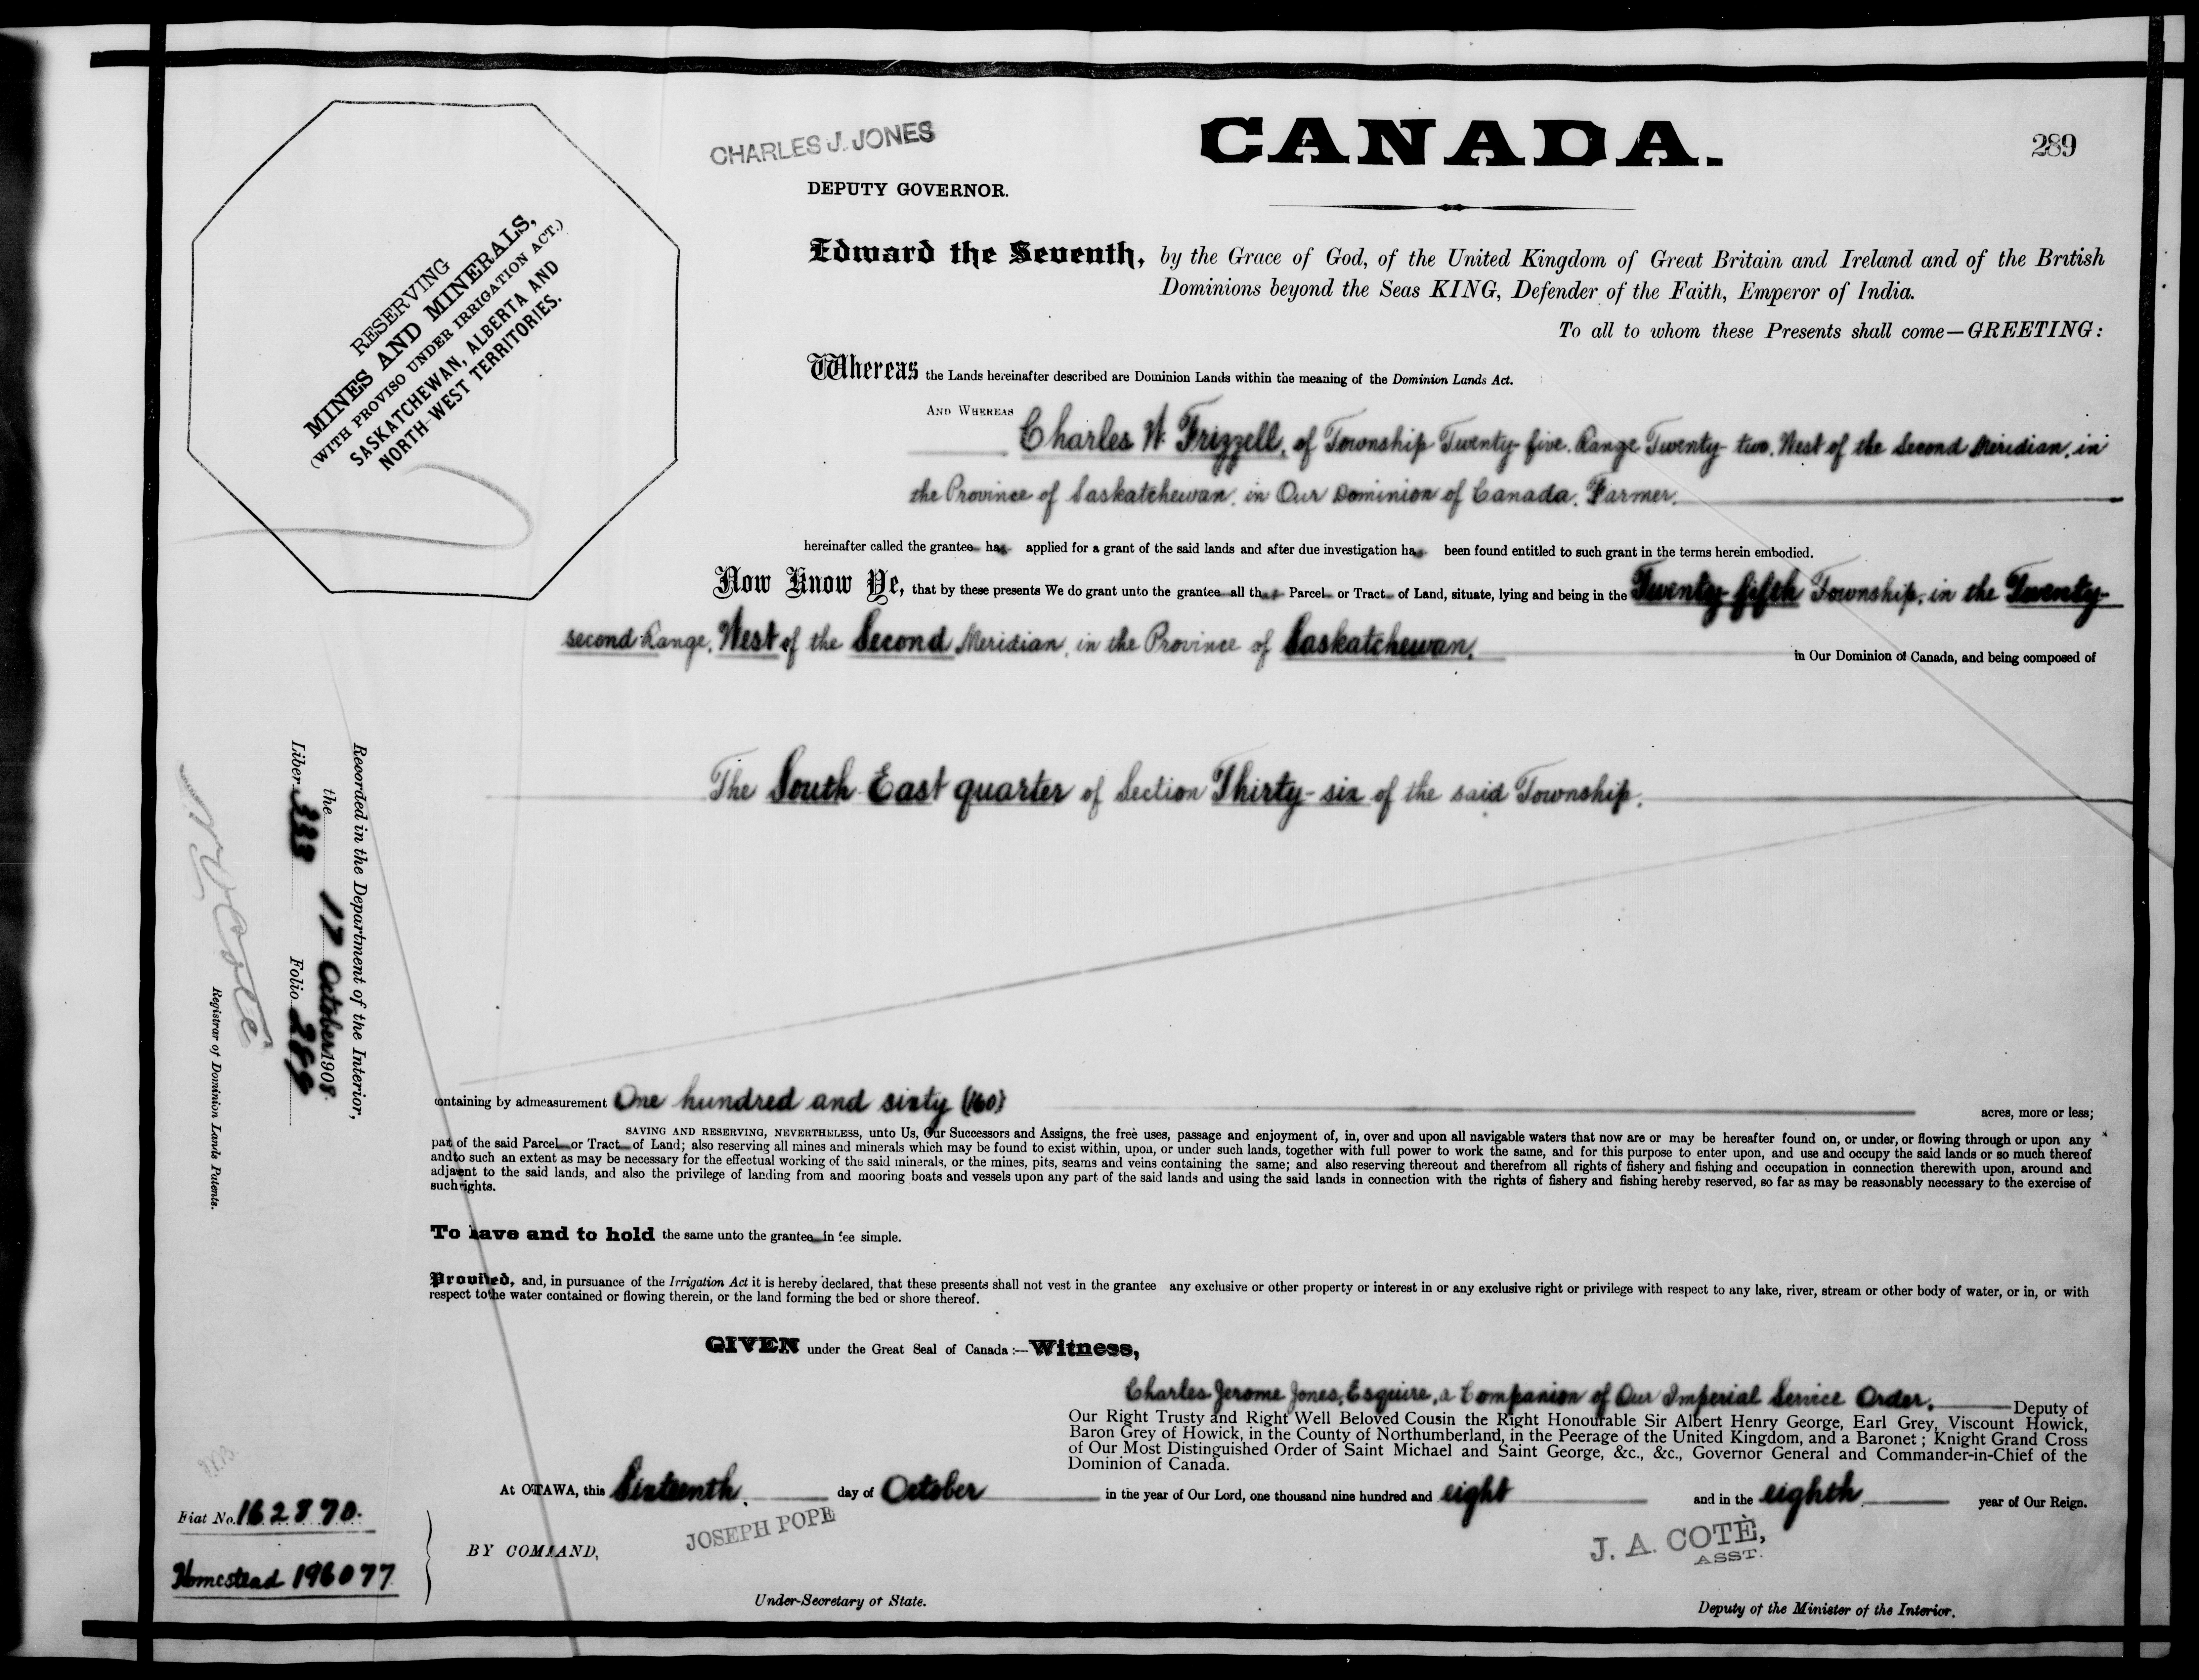 CHARLES J. JONES
DEPUTY GOVERNOR.
CANADA.
289
RESERVING
MINES AND MINERALS,
(WITH PROVISO UNDER IRRIGATION ACT.)
SASKATCHEWAN, ALBERTA AND
NORTH-WEST TERRITORIES.
Edward the Seventh, by the Grace of God, of the United Kingdom of Great Britain and Ireland and of the British
Dominions beyond the Seas KING, Defender of the Faith, Emperor of India.
To all to whom these Presents shall come—GREETING:
Whereas the Lands hereinafter described are Dominion Lands within the meaning of the Dominion Lands Act.
AND WHEREAS
Charles W. Frizzell, of Township Twenty-five, Range Twenty-two, West of the Second Meridian, in
the Province of Saskatchewan, in Our Dominion of Canada, Farmer,
hereinafter called the grantee has applied for a grant of the said lands and after due investigation has been found entitled to such grant in the terms herein embodied.
Now Know Ye, that by these presents We do grant unto the grantee all that Parcel or Tract of Land, situate, lying and being in the Twenty-fifth Township, in the Twenty-
second Range, West of the Second Meridian, in the Province of Saskatchewan, in Our Dominion of Canada, and being composed of
The South East quarter of Section Thirty-six of the said Township,
Recorded in the Department of the Interior,
the 17 October 1908.
Liber 333 Folio 289
N O Coté
Registrar of Dominion Lands Patents.
containing by admeasurement One hundred and sixty (160) acres, more or less;
SAVING AND RESERVING, NEVERTHELESS, unto Us, Our Successors and Assigns, the free uses, passage and enjoyment of, in, over and upon all navigable waters that now are or may be hereafter found on, or under, or flowing through or upon any
part of the said Parcel or Tract of Land; also reserving all mines and minerals which may be found to exist within, upon, or under such lands, together with full power to work the same, and for this purpose to enter upon, and use and occupy the said lands or so much thereof
and to such an extent as may be necessary for the effectual working of the said minerals, or the mines, pits, seams and veins containing the same; and also reserving thereout and therefrom all rights of fishery and fishing and occupation in connection therewith upon, around and
adjacent to the said lands, and also the privilege of landing from and mooring boats and vessels upon any part of the said lands and using the said lands in connection with the rights of fishery and fishing hereby reserved, so far as may be reasonably necessary to the exercise of
such rights.
To have and to hold the same unto the grantee in fee simple.
Provided, and, in pursuance of the Irrigation Act it is hereby declared, that these presents shall not vest in the grantee any exclusive or other property or interest in or any exclusive right or privilege with respect to any lake, river, stream or other body of water, or in, or with
respect to the water contained or flowing therein, or the land forming the bed or shore thereof.
GIVEN under the Great Seal of Canada:—Witness,
Charles Jerome Jones, Esquire, a Companion of Our Imperial Service Order, Deputy of
Our Right Trusty and Right Well Beloved Cousin the Right Honourable Sir Albert Henry George, Earl Grey, Viscount Howick,
Baron Grey of Howick, in the County of Northumberland, in the Peerage of the United Kingdom, and a Baronet; Knight Grand Cross
of Our Most Distinguished Order of Saint Michael and Saint George, &c., &c., Governor General and Commander-in-Chief of the
Dominion of Canada.
At OTTAWA, this Sixteenth day of October in the year of Our Lord, one thousand nine hundred and eight and in the eighth year of Our Reign.
Fiat No. 162870.
Homestead 196077
BY COMMAND,
JOSEPH POPE
Under-Secretary of State.
J. A. COTÈ,
ASST.
Deputy of the Minister of the Interior.